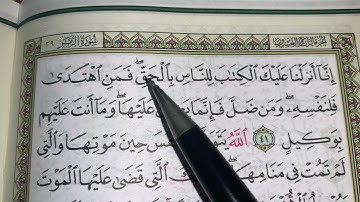 ٣٩ سُورَةُ الزُّمَرِ
إِنَّا أَنزَلْنَا عَلَيْكَ الْكِتَٰبَ لِلنَّاسِ بِالْحَقِّ ۖ فَمَنِ اهْتَدَىٰ
فَلِنَفْسِهِ ۖ وَمَن ضَلَّ فَإِنَّمَا يَ عَلَيْهَا ۖ وَمَا أَنتَ عَلَيْهِم
بِوَكِيلٍ ٤١ اللَّهُ يَتَوَ حِينَ مَوْتِهَا وَالَّتِي
لَمْ تَمُتْ فِي مَنَامِهَا الَّتِي قَضَىٰ عَلَيْهَا الْمَوْتَ